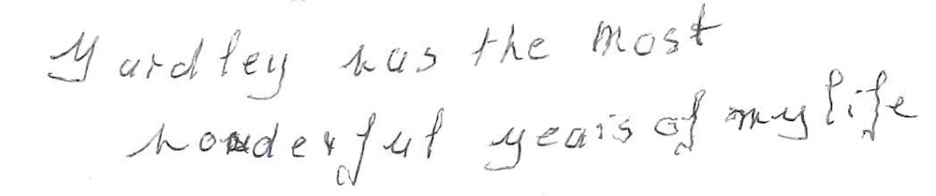 Yardley was the most
wonderful years of my life